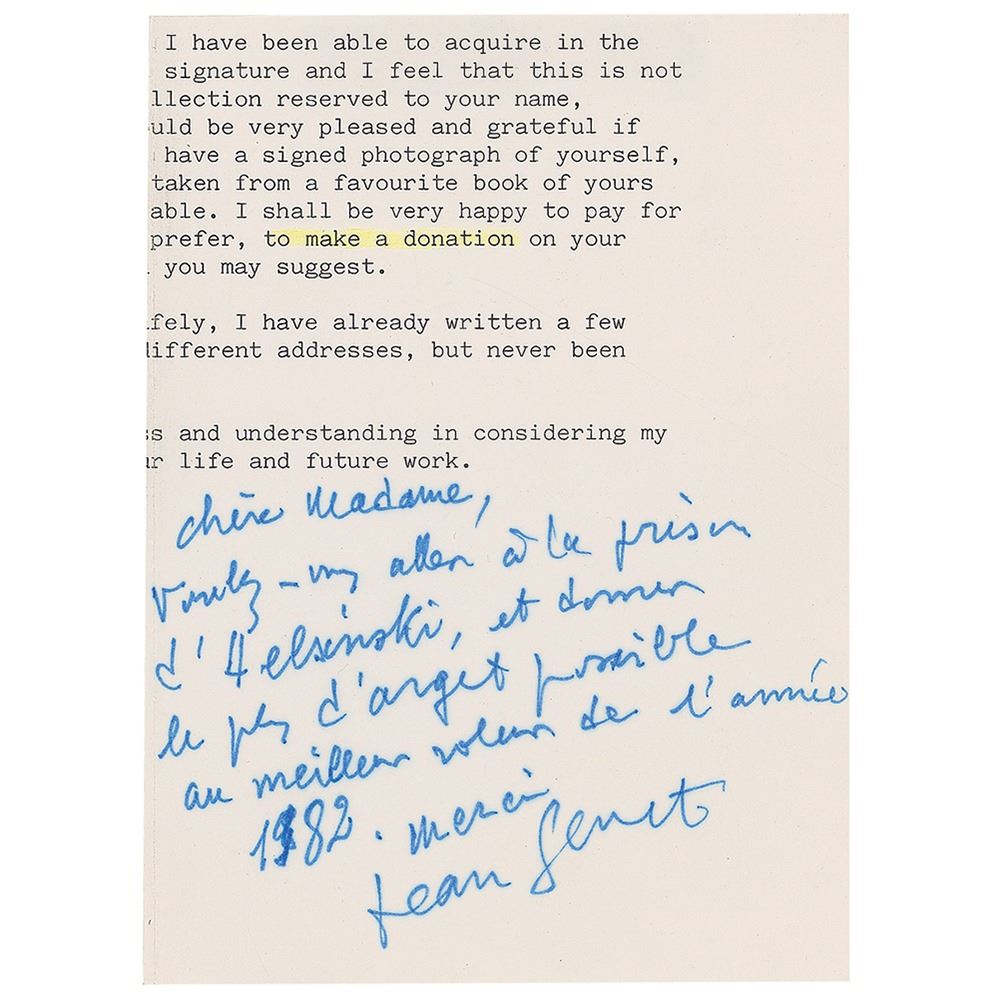 I have been able to acquire in the
signature and I feel that this is not
llection reserved to your name,
uld be very pleased and grateful if
have a signed photograph of yourself,
taken from a favourite book of yours
able. I shall be very happy to pay for
prefer, to make a donation on your
you may suggest.
fely, I have already written a few
ifferent addresses, but never been
s and understanding in considering my
r life and future work.
chère Madame,
Voulez-vous aller à la prison
d'Helsinski, et donner
le plus d'arget possible
au meilleur voleur de l'année
1982. merci
Jean Genet